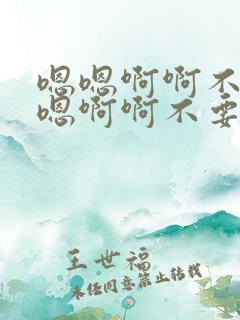 嗯嗯啊啊不
嗯啊啊不要
王世福
未经同意禁止转载